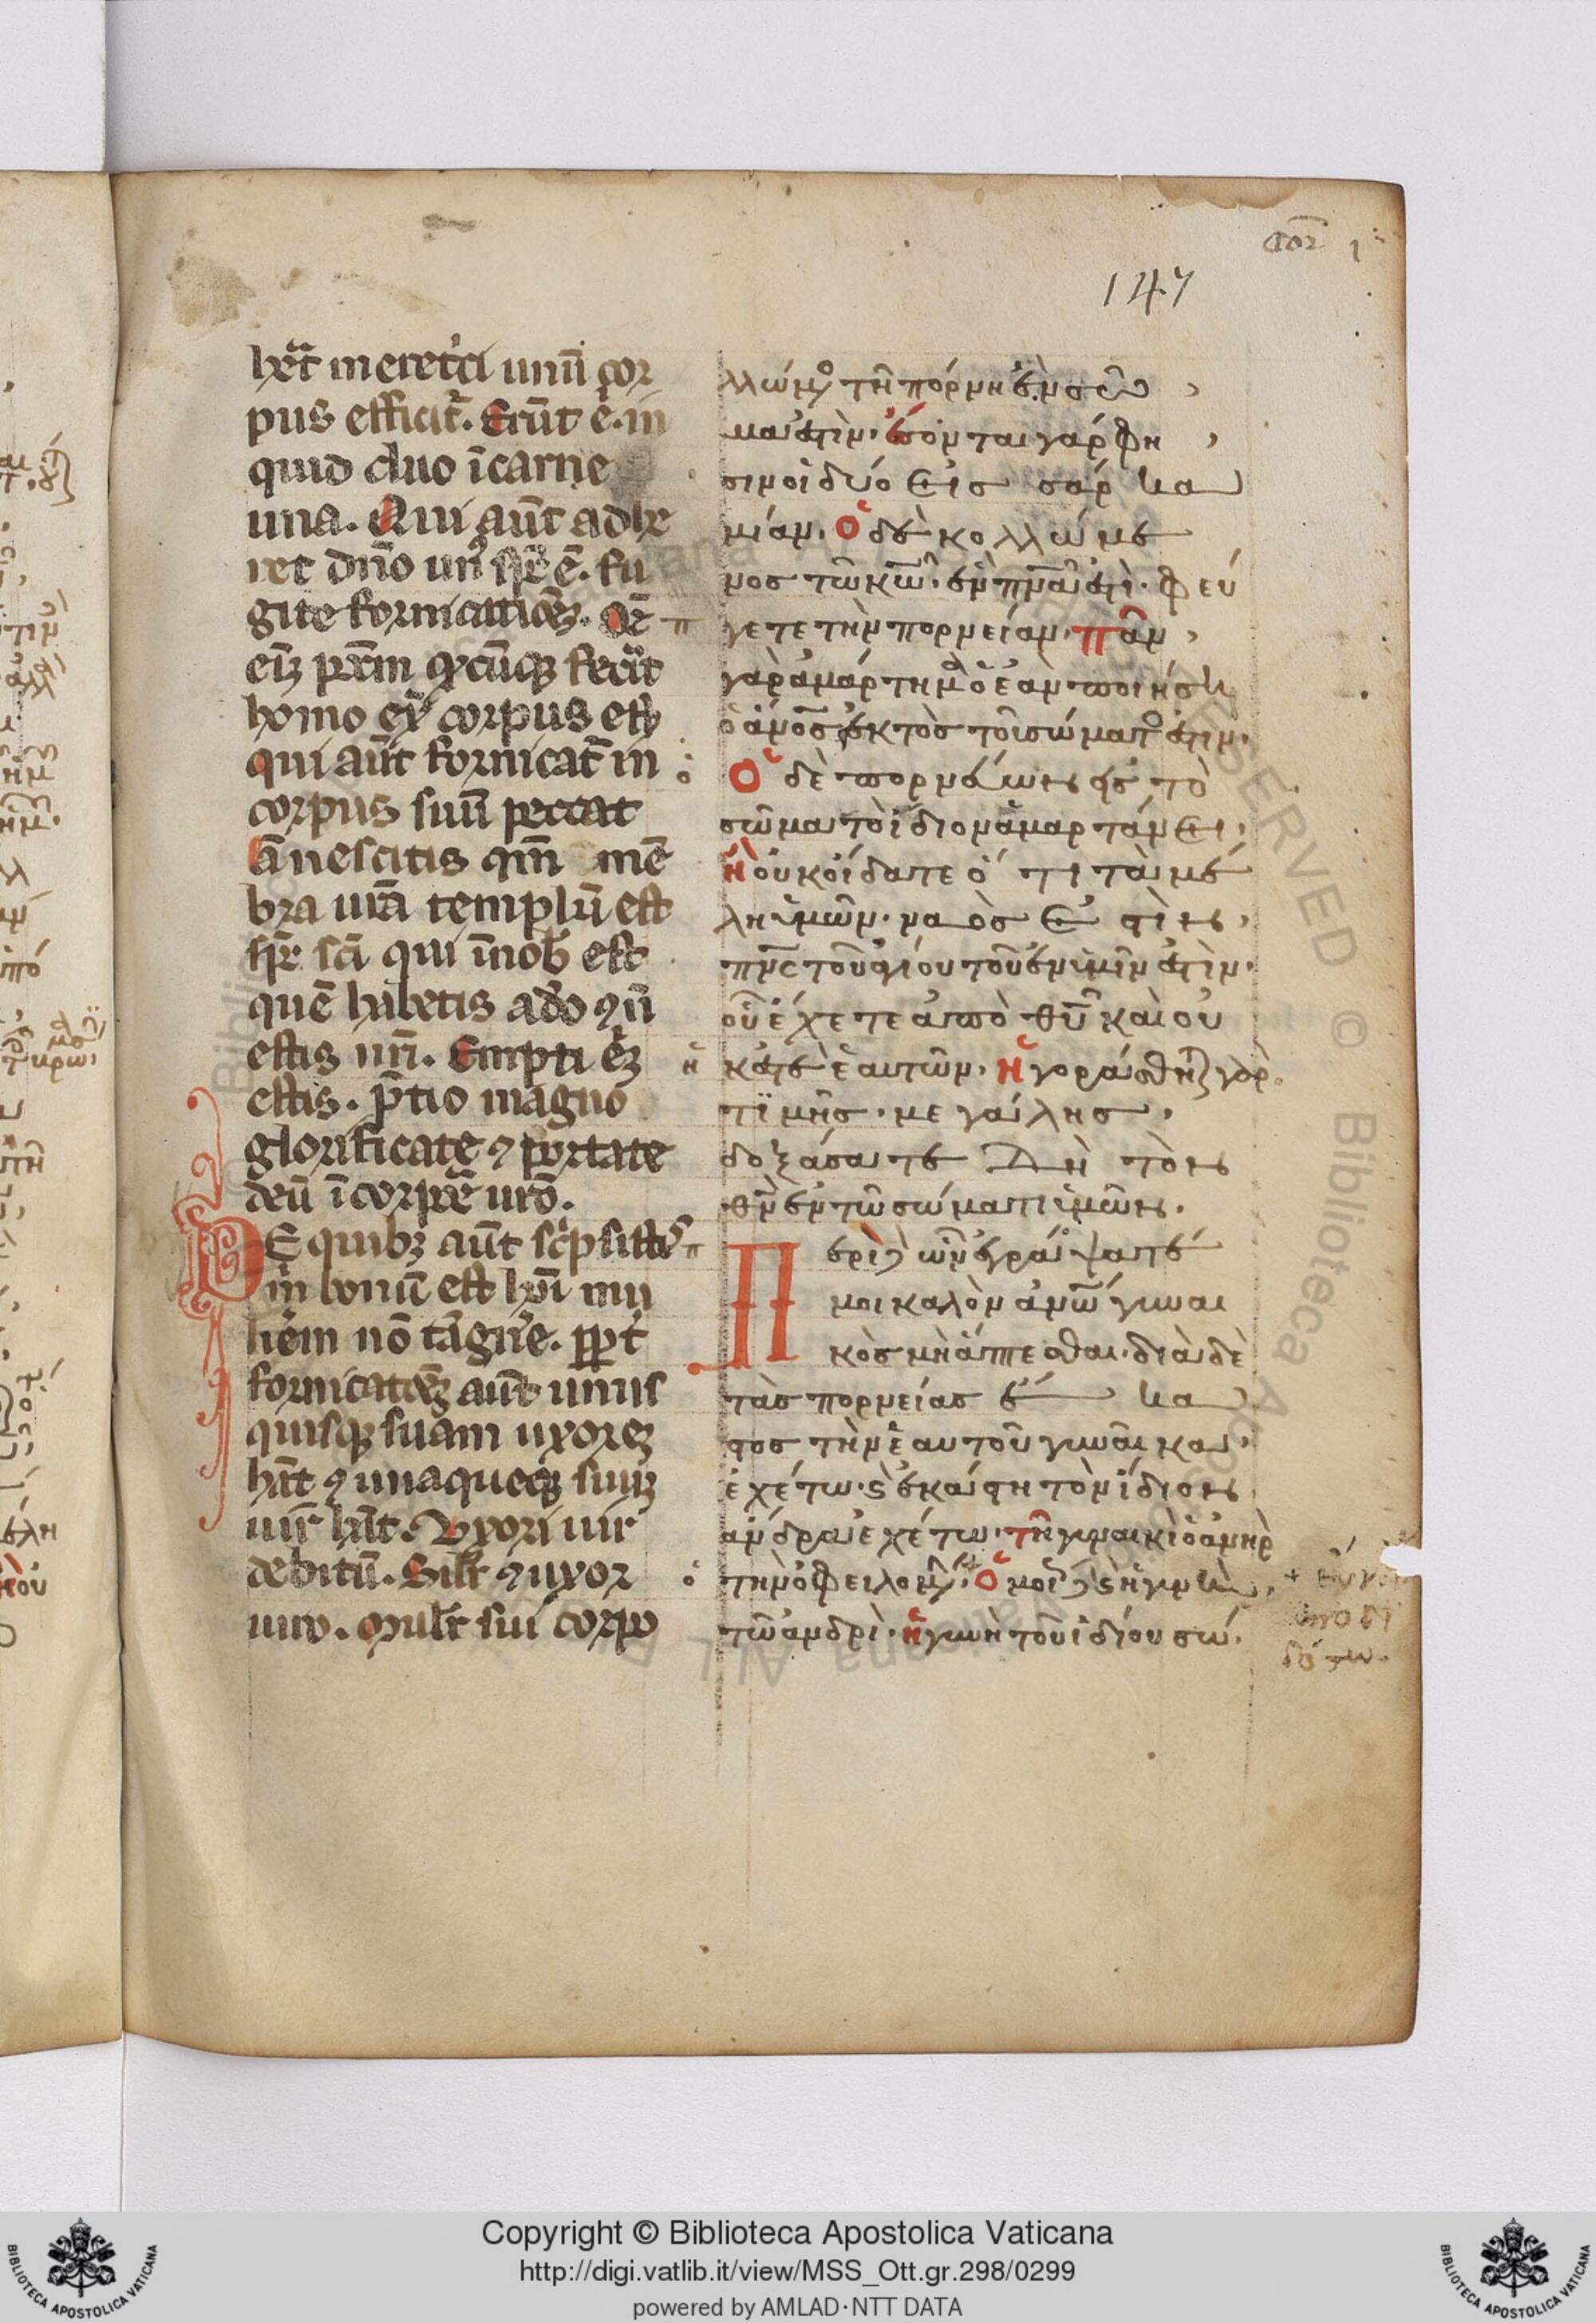 cor 1
147
heret meret'ci unū cor
pus efficit̄. Erūt ē. in
quid duo ī carne
una. Qui aūt adhe
ret dn̄o unꝰ sp̄c ē. fu
gite fornicatiōeꝫ. Oē
eīꝫ pcc̄m qđcūqꝫ fecīt
homo ex̄ corpus est
qui aūt fornicat̄ in
corpus suū peccat
Ā nescitis qm̄ mē
bra ur̄a templū est
sp̄c sc̄i qui ī uob̄ est
quē habetis a do ⁊ n̄
estis ur̄i. Empti eīꝫ
estis. p̄tio magno
glorificate ⁊ portate
deū ī corpe uro.
DE quibꝫ aūt sc̄psistis
m̄ bonū est ho͞i mu
lierem nō tāgere. ꝓpt̄
fornicatōeꝫ aūt unus
quisqꝫ suam uxoreꝫ
hēat ⁊ unaqueqꝫ suuꝫ
uir̄ hēat. Uxori uir
debitū. Silr̄ ⁊ uxor
uiro. Mulr̄ sui corpo
λλώμενος τῆ πόρνη ἓν σῶ
μα ἐστὶν. ἔσονται γάρ φη
σιν οἱ δύο εἰς σάρκα
μίαν. Ὁ δὲ κολλώμε
νος τῶ κω̄. ἓν πνᾱ ἐστὶ. φεύ
γετε τὴν πορνείαν. πᾶν
γὰρ ἁμάρτημα ὃ ἐὰν ποιήση
ὁ ἄνο̄ς ἐκτὸς τοῦ σώματος ἐστιν.
Ὁ δὲ πορνεύων εἰς τὸ
σῶμα τὸ ἴδιον ἁμαρτάνει.
Ἢ οὐκ οἴδατε ὅτι τὰ μέ
λη ὑμῶν. ναὸς ἐστὶν.
πνς̄ τοῦ ἁγίου τοῦ ἐν ὑμῖν ἐστὶν.
οὗ ἔχετε ἀπὸ θῡ καὶ οὐ
κ ἐστὲ ἑαυτῶν. Ἠγοράσθητε γὰρ
τϊμῆς. μεγάλης.
δοξάσατε Δὴ τὸν
θν̄ ἐν τῶ σώματι ὑμῶν.
Περὶ δὲ ὧν ἐγράψατέ
μοι καλὸν ἀνω̄ γυναι
κὸς μὴ ἅπτεσθαι. διὰ δὲ
τὰς πορνείας ἕκα
στος τὴν ἑαυτοῦ γυναῖκα.
ἐχέτω. ϗ ἑκάστη τὸν ἴδιον
ἄνδρα ἐχέτω. τῆ γυναικὶ ὁ ἀνὴρ
τὴν ὀφειλομένην. Ὁμοίως δὲ ϗ ἡ γυνὴ
τῶ ἀνδρὶ. ἡ γυνὴ τοῦ ἰδίου σώ.
ἀποδι
δότω.
Copyright © Biblioteca Apostolica Vaticana
http://digi.vatlib.it/view/MSS_Ott.gr.298/0299
powered by AMLAD·NTT DATA